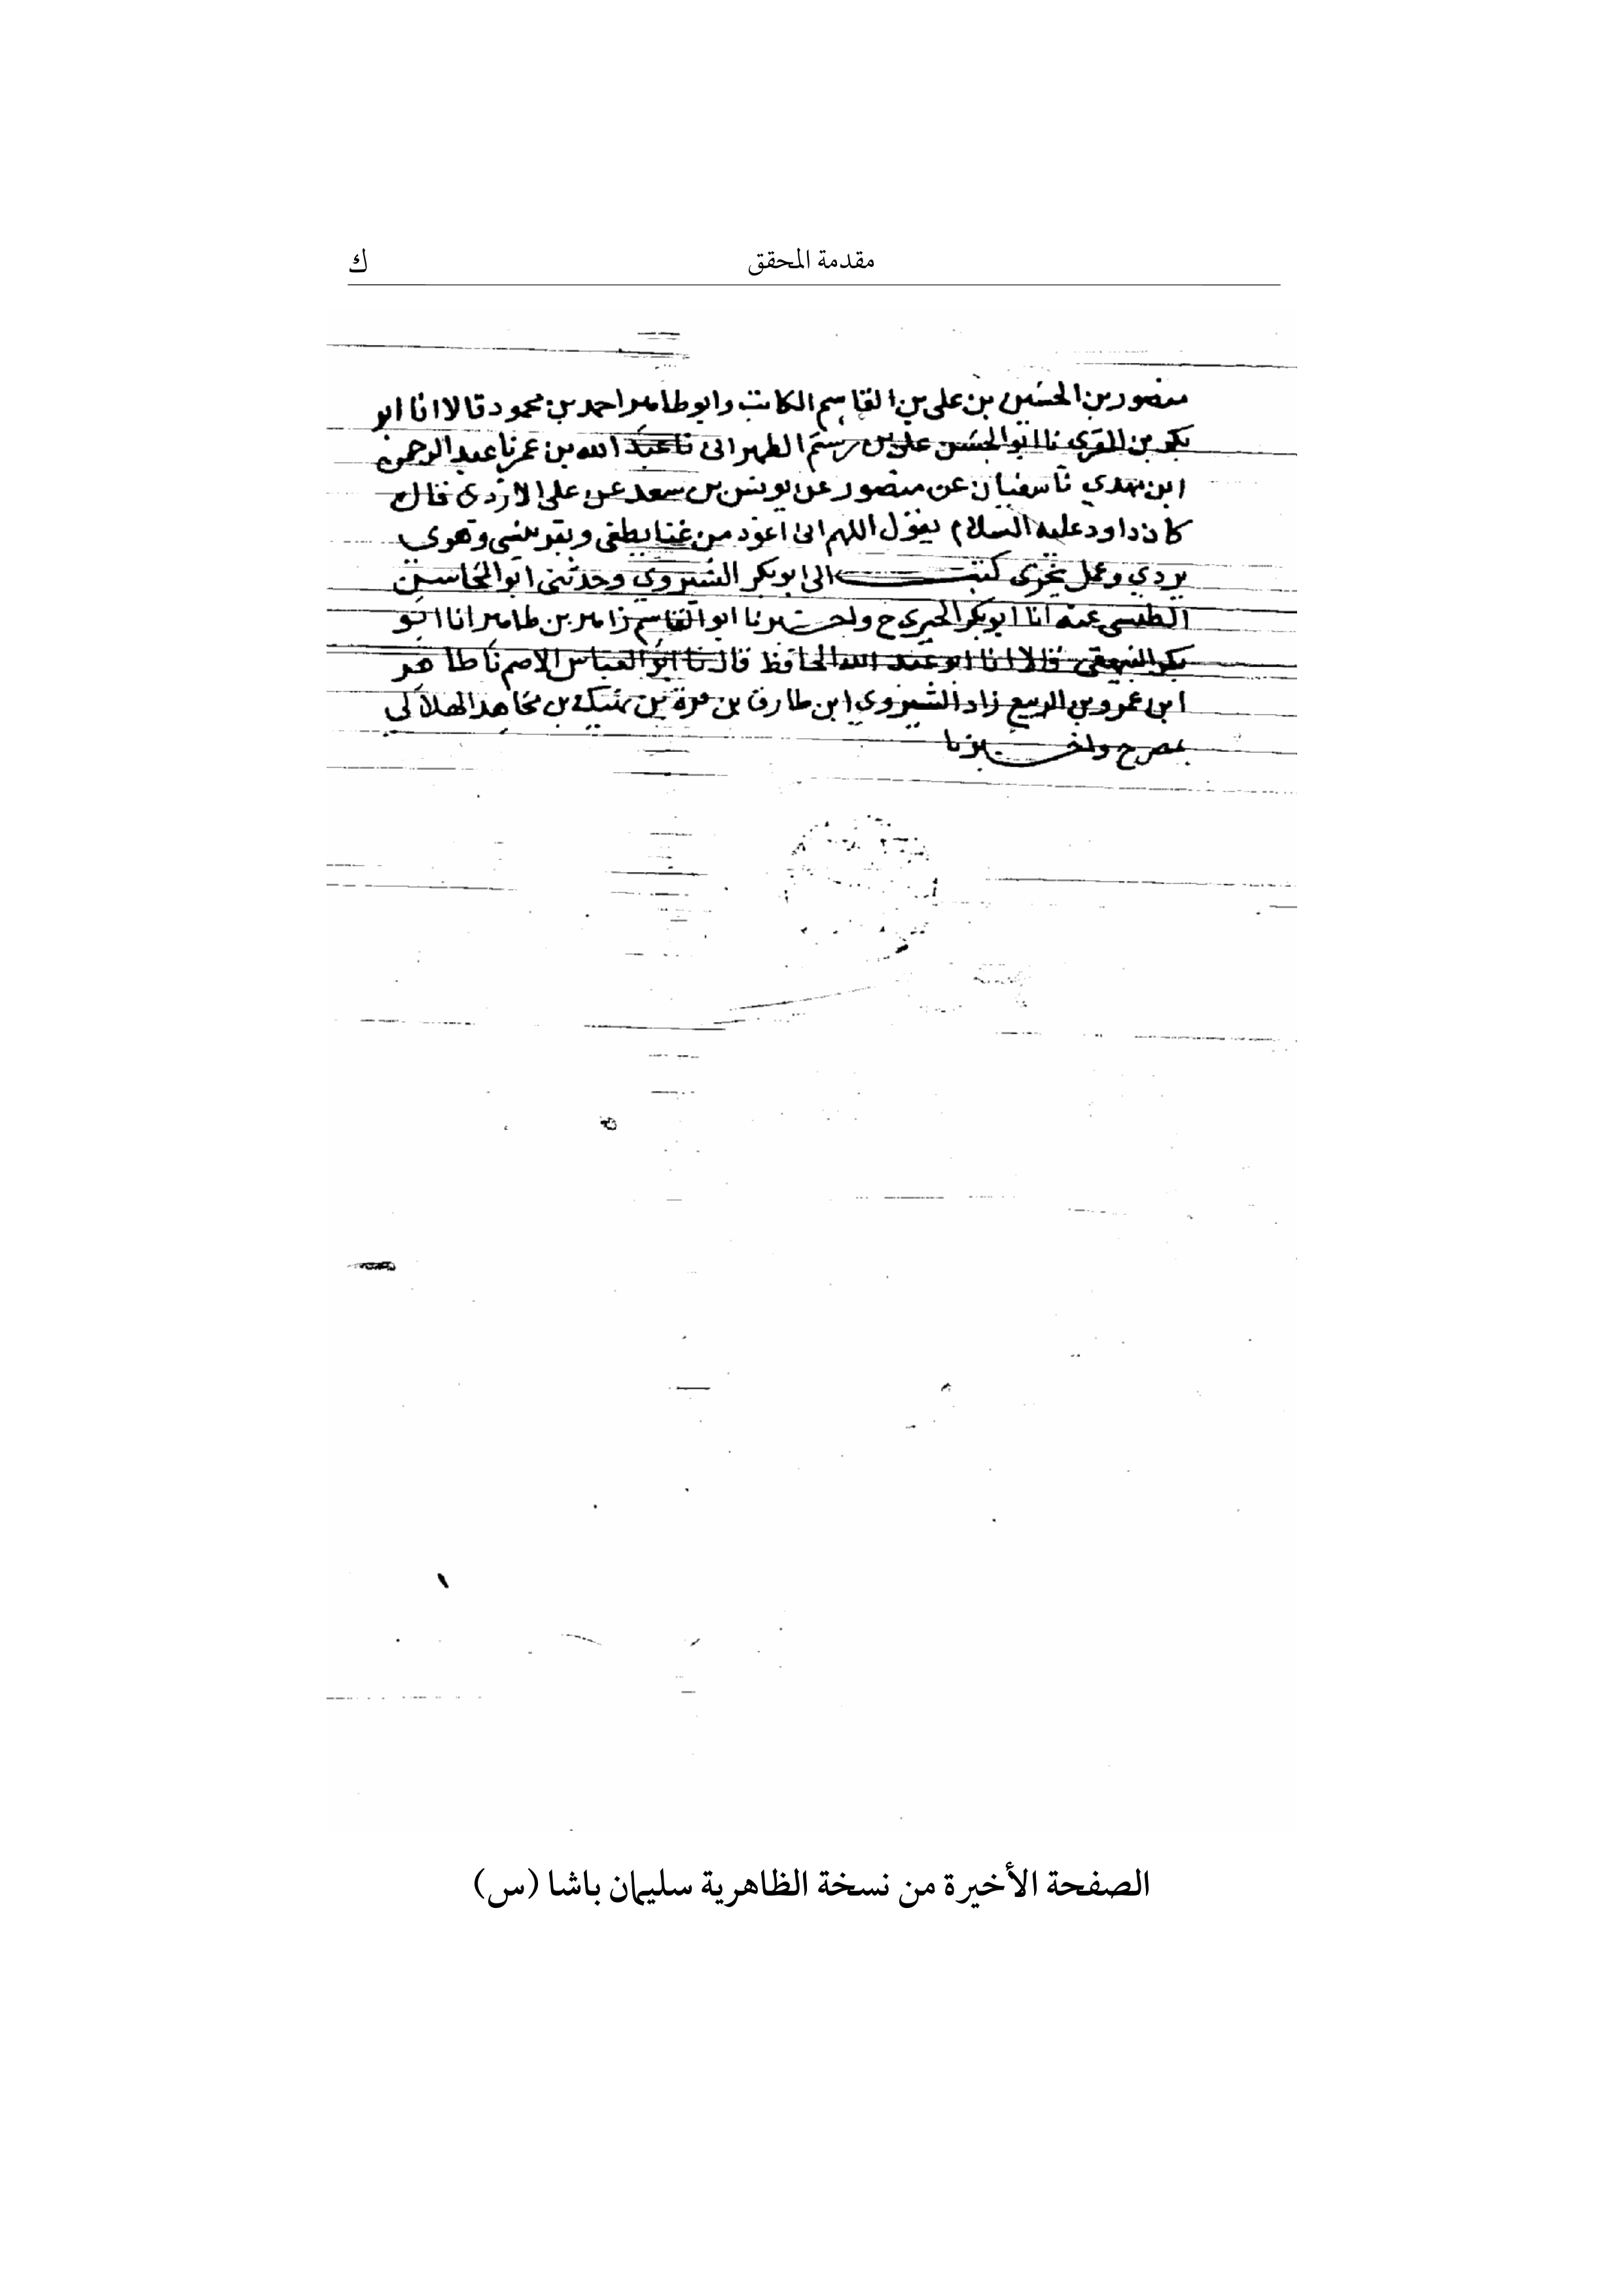 مقدمة المحقق
ك
منصور بن الحسين بن على بن القاسم الكاتب وابو طاهر احمد بن محمود قالا انا ابو
بكر بن المقرى نا ابو الحسن على بن رستم الطهرانى نا عبد الله بن عمر نا عبد الرحمن
ابن مهدي نا سفيان عن منصور عن يونس بن سعد عن على الازدى قال
كان داود عليه السلام يقول اللهم انى اعوذ من غنا يطغى وفقر ينسى وهوى
يردي وعمل يخزى كتب الى ابو بكر الشيروي وحدثنى ابو المحاسن
الطبسى عنه انا ابو بكر الحيرى ح واخبرنا ابو القاسم زاهر بن طاهر انا ابو
بكر البيهقى قالا انا ابو عبد الله الحافظ قال نا ابو العباس الاصم نا طاهر
ابن عمرو بن الربيع زاد الشيروي ابن طارق بن قرة بن نهيك بن مجاهد الهلالي
بمصر ح واخبرنا
الصفحة الأخيرة من نسخة الظاهرية سليمان باشا (س)